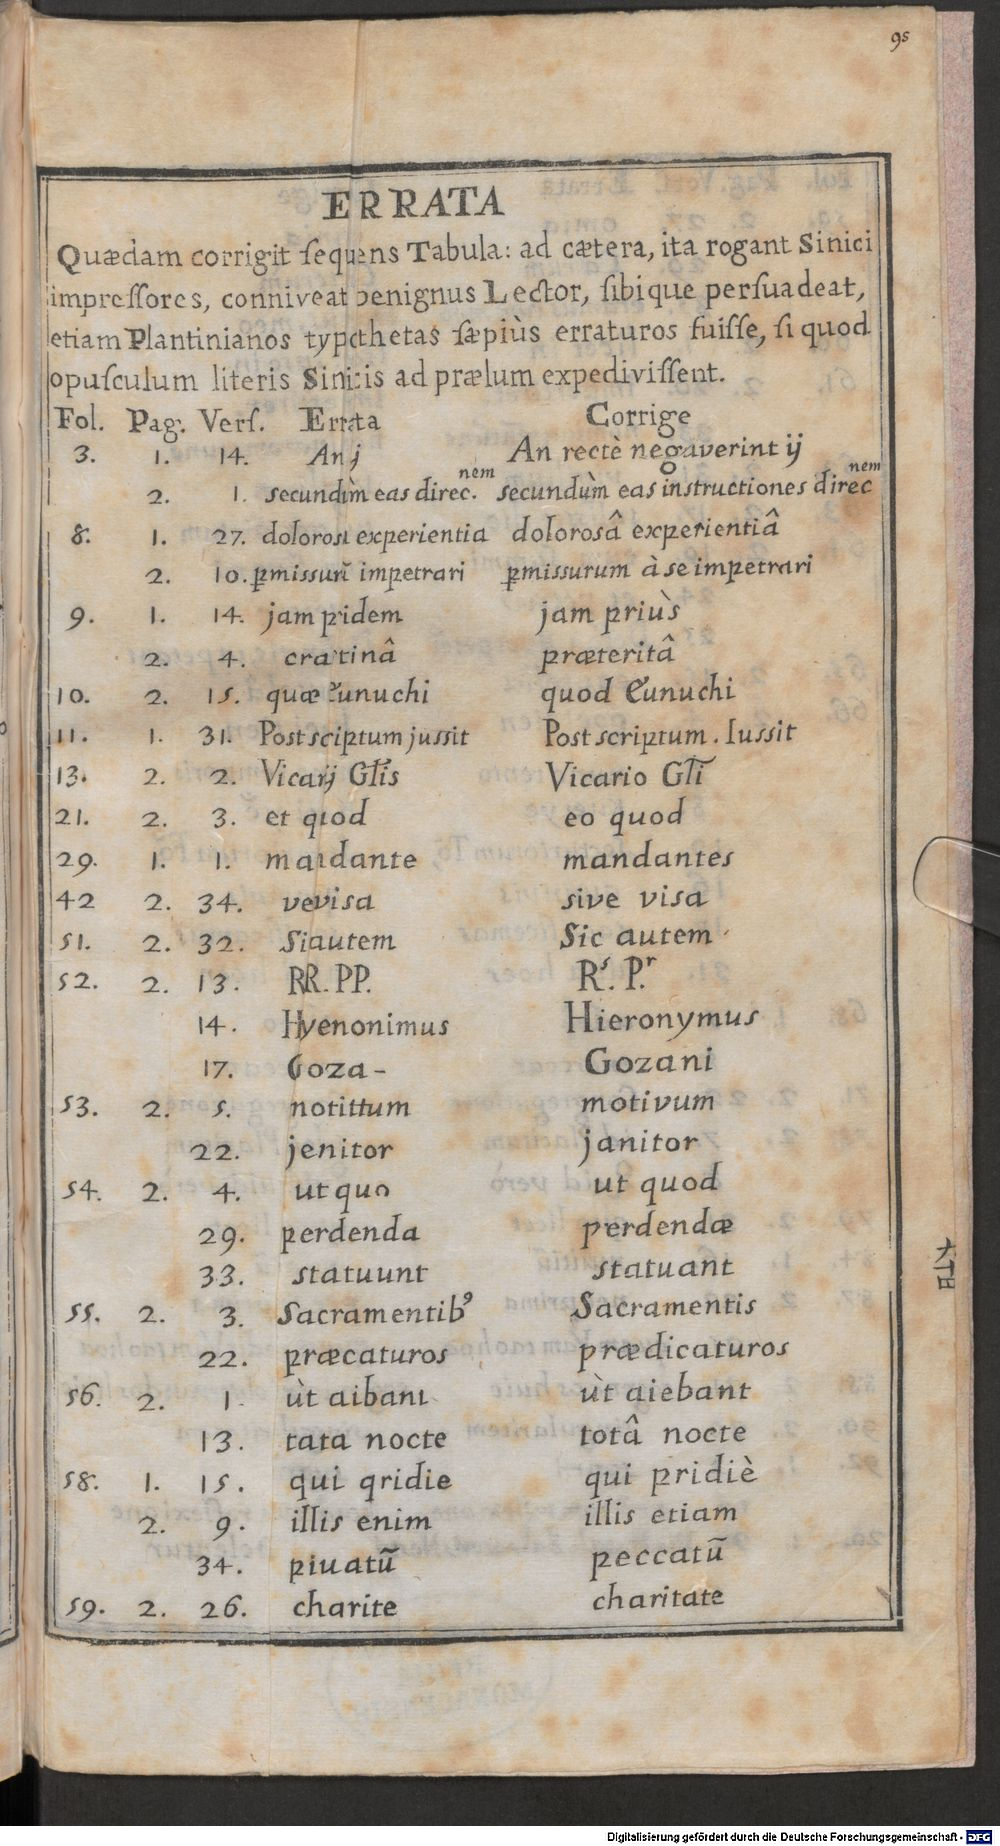 95
ERRATA
Quædam corrigit ſequens Tabula: ad cætera, ita rogant Sinici
impreſſores, conniveat benignus Lector, ſibique perſuadeat,
etiam Plantinianos typothetas ſæpiùs erraturos fuiſſe, ſi quod
opuſculum literis Sinicis ad prælum expediviſſent.
Fol. Pag. Verſ. Errata Corrige
3. 1. 14. An j An rectè negaverint ij
2. 1. secundùm eas direc.nem secundùm eas instructiones direcnem
8. 1. 27. dolorosa experientia dolorosâ experientiâ
2. 10. ꝑmissurũ impetrari ꝑmissurum à se impetrari
9. 1. 14. jam pridem jam priùs
2. 4. cratinâ præteritâ
10. 2. 15. quæ Eunuchi quod Eunuchi
11. 1. 31. Post sciptum jussit Post scriptum. Iussit
13. 2. 2. Vicarij Gl̃is Vicario Gl̃i
21. 2. 3. et quod eo quod
29. 1. 1. mandante mandantes
42 2. 34. vevisa sive visa
51. 2. 32. Siautem Sic autem
52. 2. 13. RR. PP. Rs. Pr.
14. Hyenonimus Hieronymus
17. Goza- Gozani
53. 2. 5. notittum motivum
22. jenitor janitor
54. 2. 4. ut quo ut quod
29. perdenda perdendæ
33. statuunt statuant
55. 2. 3. Sacramentibꝰ Sacramentis
22. præcaturos prædicaturos
56. 2. 1. ùt aibant ùt aiebant
13. tata nocte totâ nocte
58. 1. 15. qui qridie qui pridiè
2. 9. illis enim illis etiam
34. piuatũ peccatũ
59. 2. 26. charite charitate
Digitalisierung gefördert durch die Deutsche Forschungsgemeinschaft - DFG